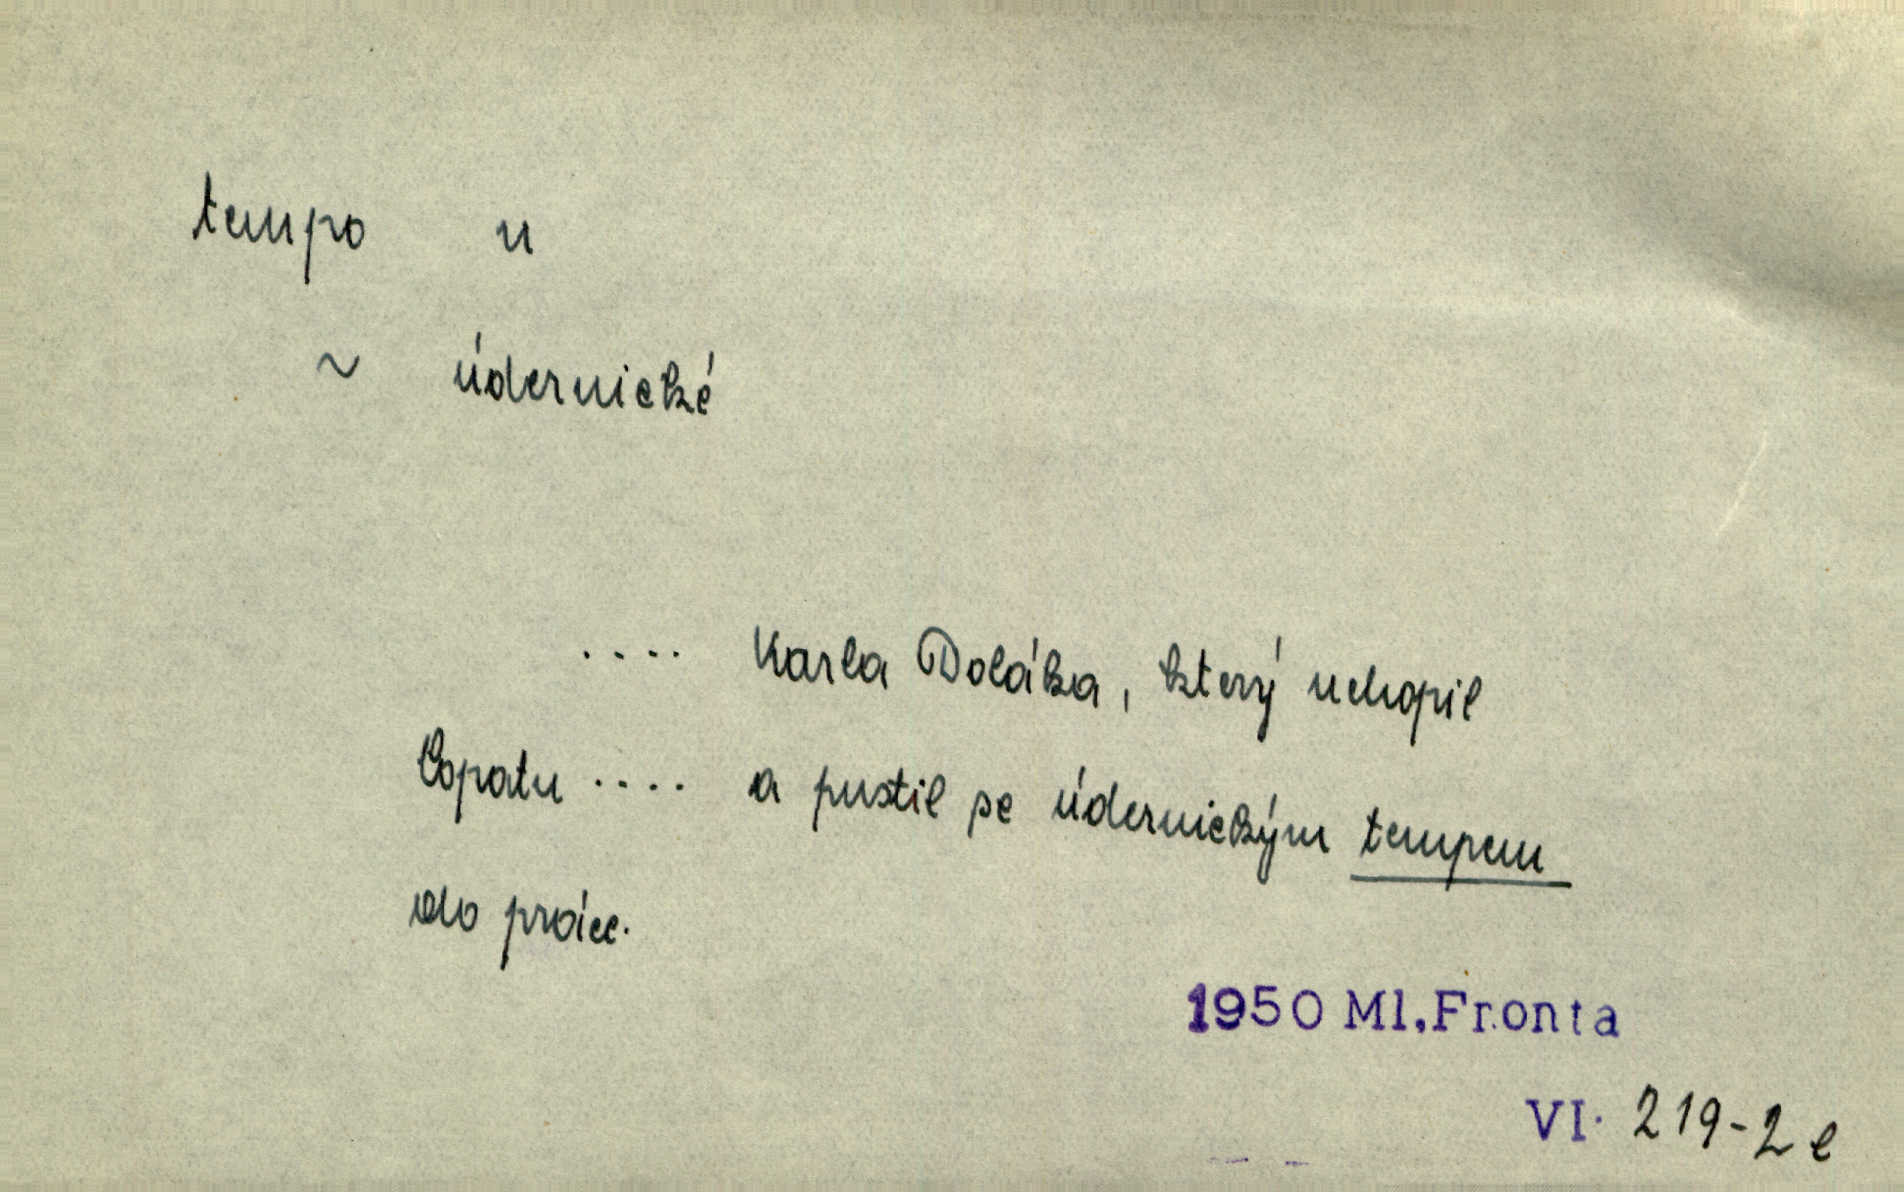 tempo n
~ údernické
.... Karla Doláka, který uchopil
lopatu .... a pustil se údernickým tempem
do práce.
1950 Ml.Fronta
VI. 219-2 e